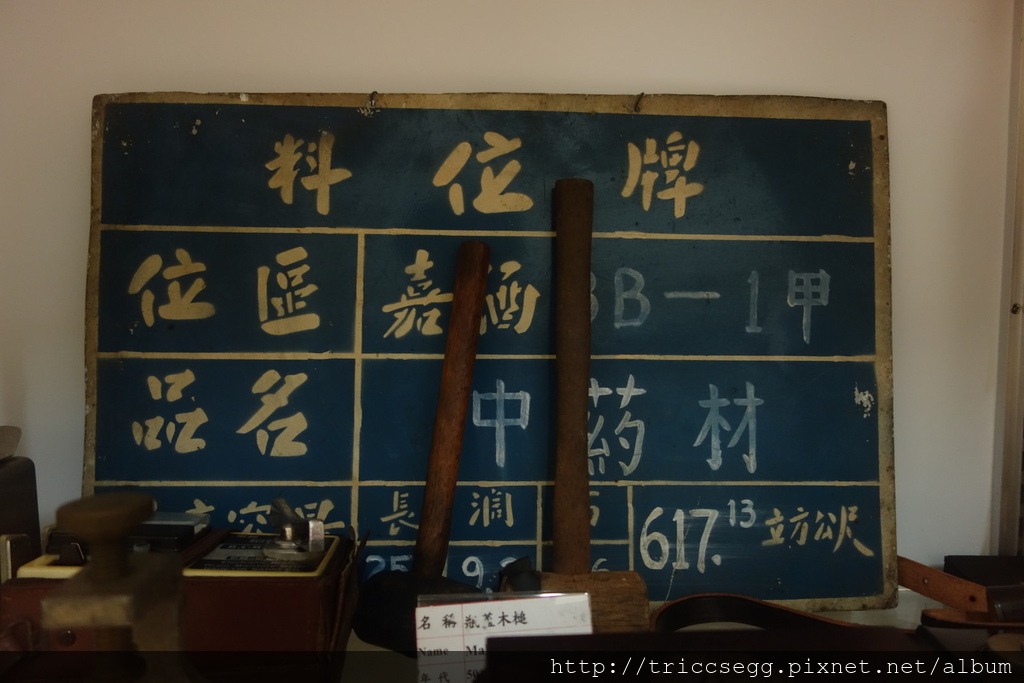 料位牌
位區 嘉涵 BB-1甲
品名 中葯材
容量 長 滴 617.13 立方公尺
25 9.
名稱 瓶蓋木槌
Name Ma
年代 50
http://triccsegg.pixnet.net/album